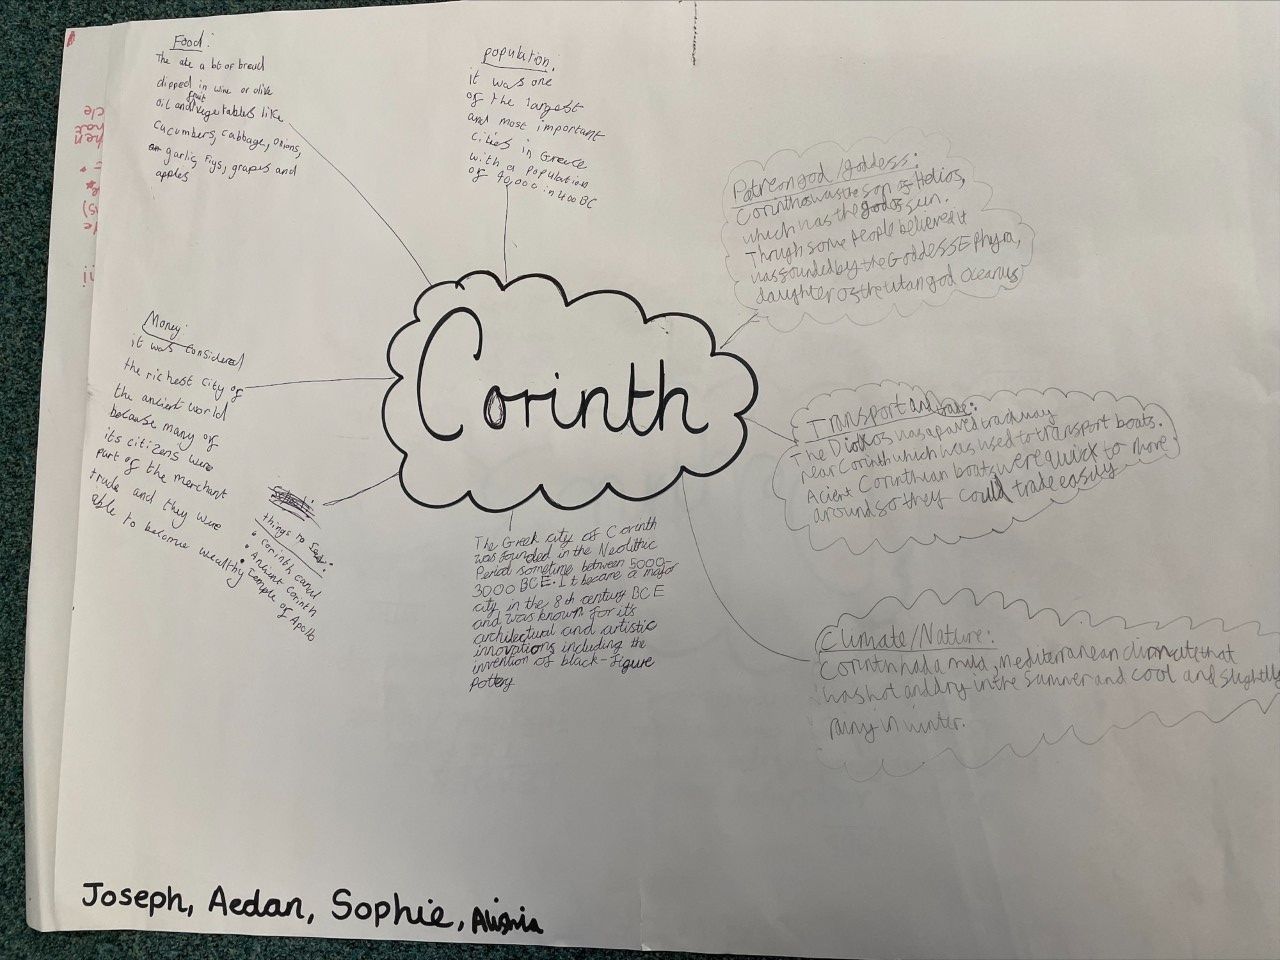 Food:
The ate a bt of bread
dipped in wine or olive
oil and fruit vegetables like
cucumbers, cabbage, onions,
garlic, figs, grapes and
apples
population:
it was one
of the largest
and most important
cities in Greece
with a population
of 90,000 in 400 BC
Patreon god/goddess:
Corinthos was the son of Helios,
which was the god of sun.
Through some people believed it
was founded by the Goddess Ephyra,
daughter of the titan god Oceanus
Corinth
Money:
it was considered
the richest city of
the ancient world
because many of
its citizens were
part of the merchant
trade and they were
able to become wealthy
Transport and trade:
The Diolkos was a paved trackway
near Corinth which was used to transport boats.
Acient Corinthian boats were quick to move
around so they could trade easily
things to see:
• Corinth canal
• Ancient Corinth
• Temple of Apollo
The Greek city of Corinth
was founded in the Neolithic
Period sometime between 5000-
3000 BCE. It became a major
city in the 8th century BCE
and was known for its
architectural and artistic
innovations including the
invention of black-figure
pottery
Climate/Nature:
Corinth had a mild, Mediterranean climate that
was hot and dry in the summer and cool and slightly
rainy in winter.
Joseph, Aedan, Sophie,